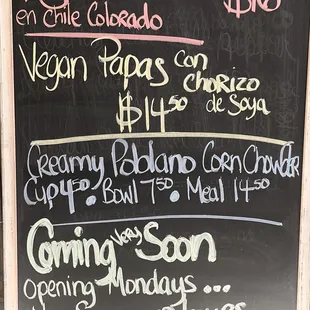 en Chile Colorado
Vegan Papas con
Chorizo
$14.50 de Soya
Creamy Poblano Corn Chowder
Cup 4.50 . Bowl 7.50 . Meal 14.50
Coming Very Soon
Opening Mondays ...